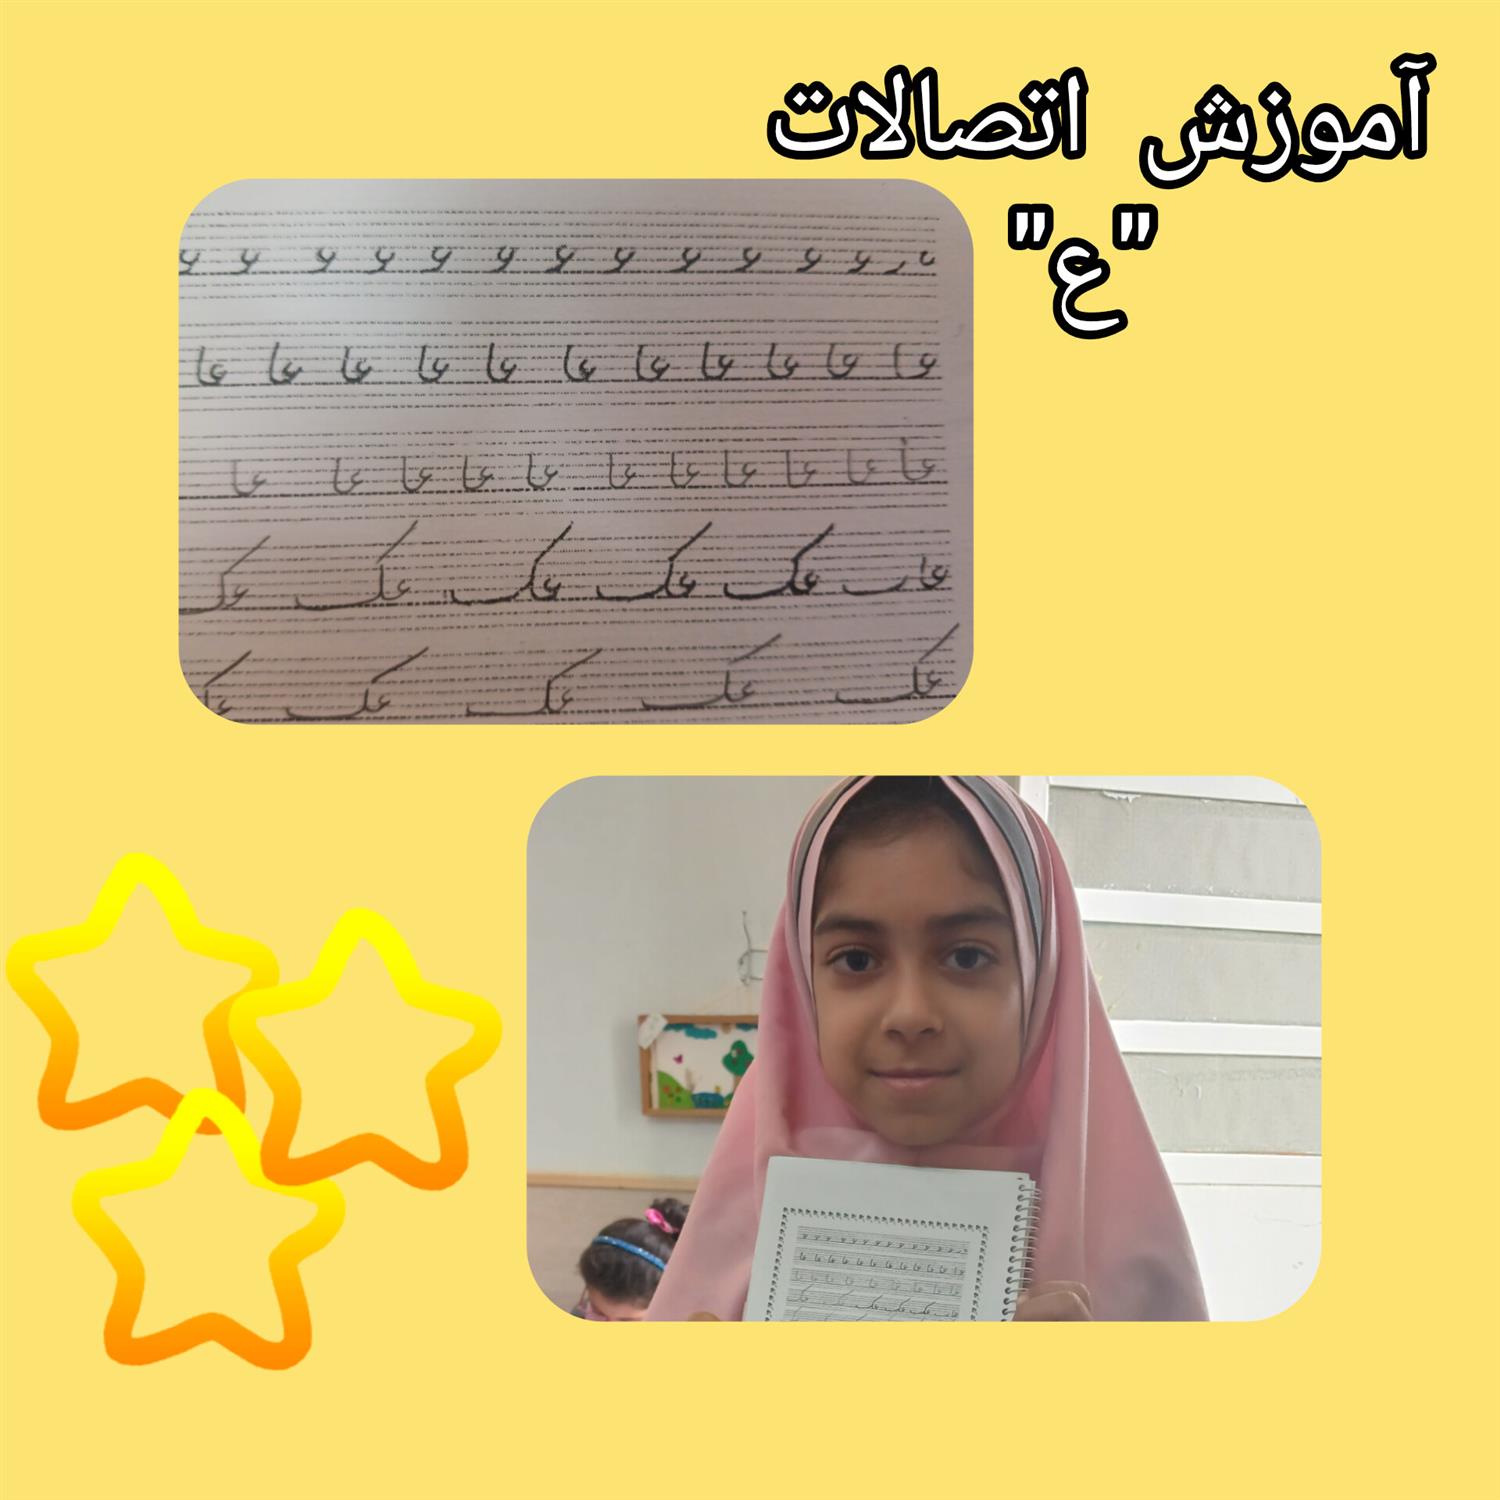 آموزش اتصالات
"ع"
عـ عـ عـ عـ عـ عـ عـ عـ عـ عـ عـ عـ
عا عا عا عا عا عا عا عا عا عا عا
عا عا عا عا عا عا عا عا عا عا عا
عک عک عک عک عک
عک عک عک عک عک